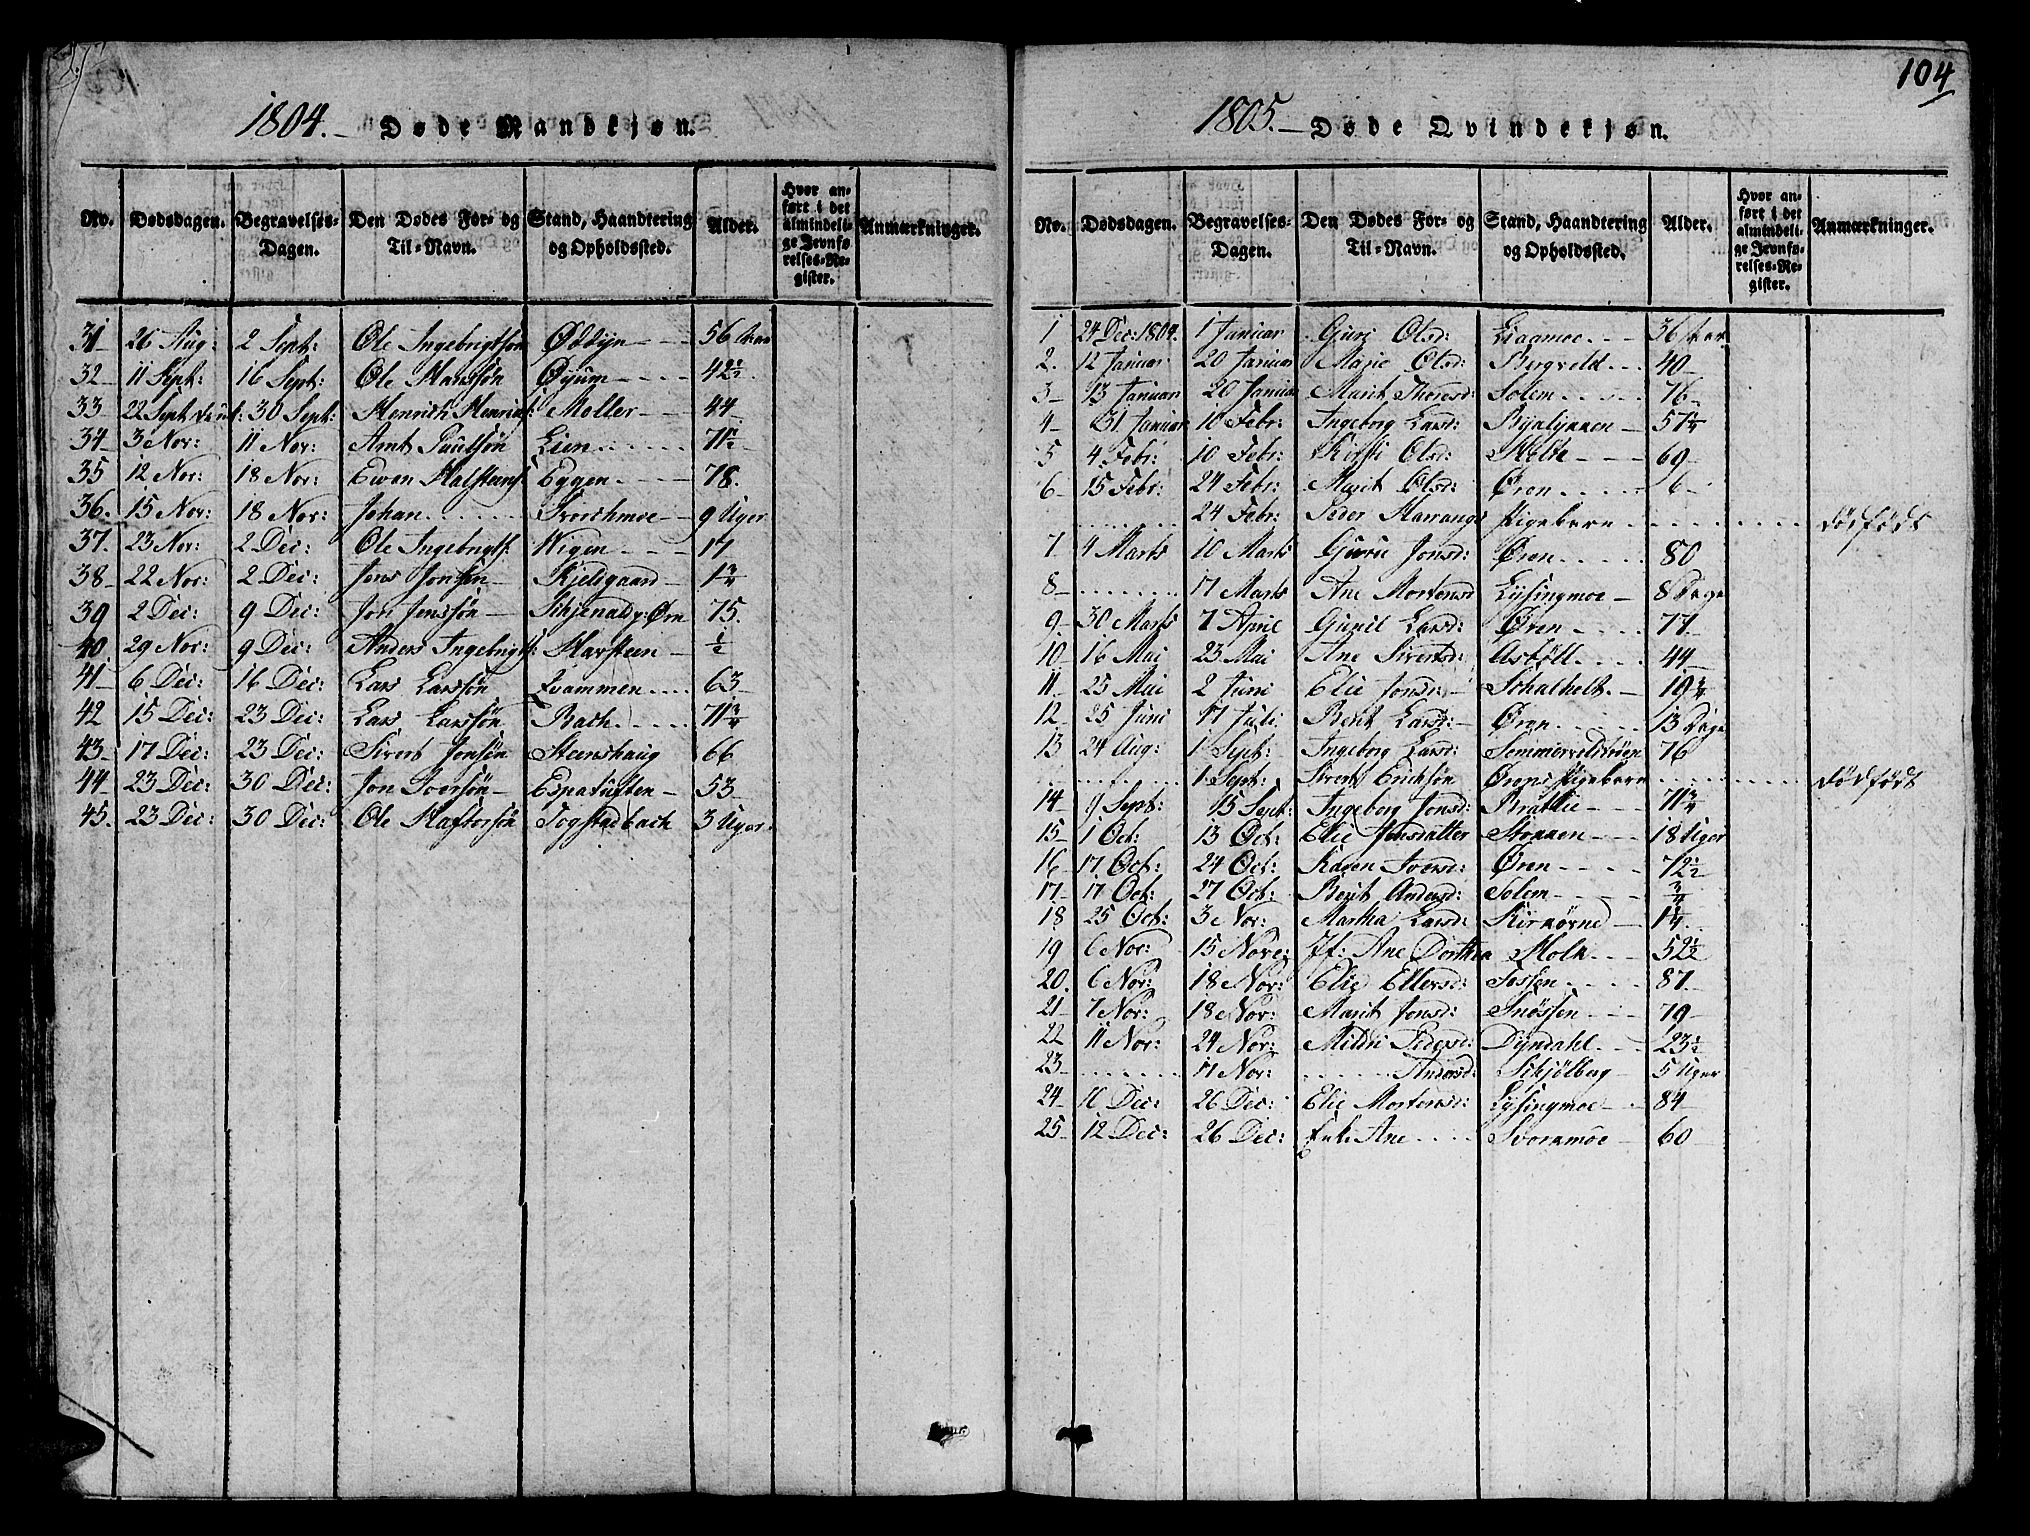 1804. Døde Mandkjøn.
No. Dødsdagen. Begravelses-Dagen. Den Dødes For- og Til-Navn. Stand, Haandtering og Opholdssted. Alder. Hvor anført i det almindelige Jevnførelses-Register. Anmærkninger.
31 26 Aug: 2 Sept: Ole Ingebrigtsøn 56 Aar
32 11 Sept: 16 Sept: Ole Hanssøn Øyum 42½
33 22 Sept 30 Sept: Henrich Henrichs: Møller 44
34 3 Nov: 11 Nov: Arnt Paulsøn Lien 71½
35 12 Nov: 18 Nov: Ewen Halsteins: Eggen 78.
36. 15 Nov: 18 Nov: Johan 9 Uger
37. 23 Nov: 2 Dec: Ole Ingebrigts: Wigen 17
38 22 Nov: 2 Dec: Jens Jonsøn Kjelsgaard 1¾
39 2 Dec: 9 Dec: Jon Jenssøn Schjenald p: Ørn 75.
40 29 Nov: 9 Dec: Anders Ingebrigts: Harsteen ½
41 6 Dec: 16 Dec: Lars Larssøn Qvammen 63
42 15 Dec: 23 Dec: Lars Larssøn Bach 71¾
43 17 Dec: 23 Dec: Sivert Jonsøn Steenshaug 66
44 23 Dec: 30 Dec: Jon Iversøn 53
45. 23 Dec: 30 Dec: Ole Hafforsøn Togstadbach 3 Uger
104
1805. Døde Qvindekjøn.
No. Dødsdagen. Begravelses-Dagen. Den Dødes For- og Til-Navn. Stand, Haandtering og Opholdssted. Alder. Hvor anført i det almindelige Jevnførelses-Register. Anmærkninger.
1 24 Dec: 1804. 1 Januar Guri Olsd: Liaamoe 36 Aar
2. 12 Januar 20 Januar Marie Olsd: 40
3 13 Januar 20 Januar Marit Thoresd: Solem 76
4 31 Januar 10 Febr: Ingeborg Larsd: 57¼
5 4 Febr: 10 Febr: Kirsti Olsd: 69
6 15 Febr: 24 Febr: Marit Olsd: Øren 6
24 Febr: Peder Pigebarn dødfødt
7. 4 Marts 10 Marts Gurie Jonsd: Øren 80
8 17 Marts Ane Mortensd Lysingmoe 8 Dage
9. 30 Marts 7 April Gunil Larsd: Øren 77
10 16 Mai 23 Mai Ane Sivertsd: Asbøll 44
11. 25 Mai 2 Juni Elie Jonsd: Schalholt 19¾
12 25 Juni 17 Juli Berit Larsd: Øren 13 Dage
13 24 Aug: 1 Sept: Ingeborg Larsd: Sommervoldsøen 76
1 Sept: Sivert Erichsøn Ørens Pigebarn dødfødt
14 9 Sept: 15 Sept: Ingeborg Jonsd: Brattlie 71¾
15 1 Oct: 13 Oct: Elie Jonsdatter Stoxxen 18 Uger
16 17 Oct: 24 Oct: Karen Iversd: Øren 72½
17 17 Oct: 27 Oct: Berit Andersd: Solem ¾
18 25 Oct: 3 Nov: Martha Larsd: 1¼
19 6 Nov: 15 Nove: Jf: Ane Dorthea Holn 52½
20. 6 Nov: 18 Nov: Elie Ellevsd: Fossen 87
21 7 Nov: 18 Nov: Marit Jonsd: Snøssen 79
22 11 Nov: 24 Nov: Mildri Pedersd: Dyndahl 23½
23 17 Nov: Andersd: Schjølberg 5 Uger
24 10 Dec: 26 Dec: Elie Mortensd: Lysingmoe 84
25 12 Dec: 26 Dec: Enke Ane Svoramoe 60